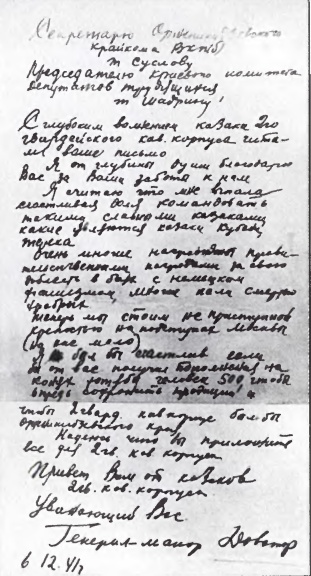 Секретарю Орджоникидзевского
крайкома ВКПб
т Суслову
Председателю краевого комитета
депутатов трудящихся
т Шадрину!
С глубоким волнением казаки 2го
гвардейского кав. корпуса чита-
ли Ваше письмо
Я от глубины души благодарю
Вас за Ваши заботы о нам
Я считаю что мне выпала
счастливая доля командовать
такими славными казаками
какие являются казаки Кубани
Терека
Очень многие награждены прави-
тельственными наградами за свою
доблесть в боях с немецким
фашизмом, многие пали смертью
храбрых
Теперь мы стоим неприступной
крепостью на подступах Москвы
(но нас мало)
Я был бы счастлив если
б от Вас получил пополнения на
конях человек 500, чтобы
впредь сохранить традиции и
чтобы 2гвард. кав корпус был бы
орджоникидзевского края
Надеюсь что Вы приложите
все для 2гв. кав корпуса
Привет Вам от казаков
2гв. кав. корпуса
Уважающий Вас
Генерал-майор Доватор
6 12.41г